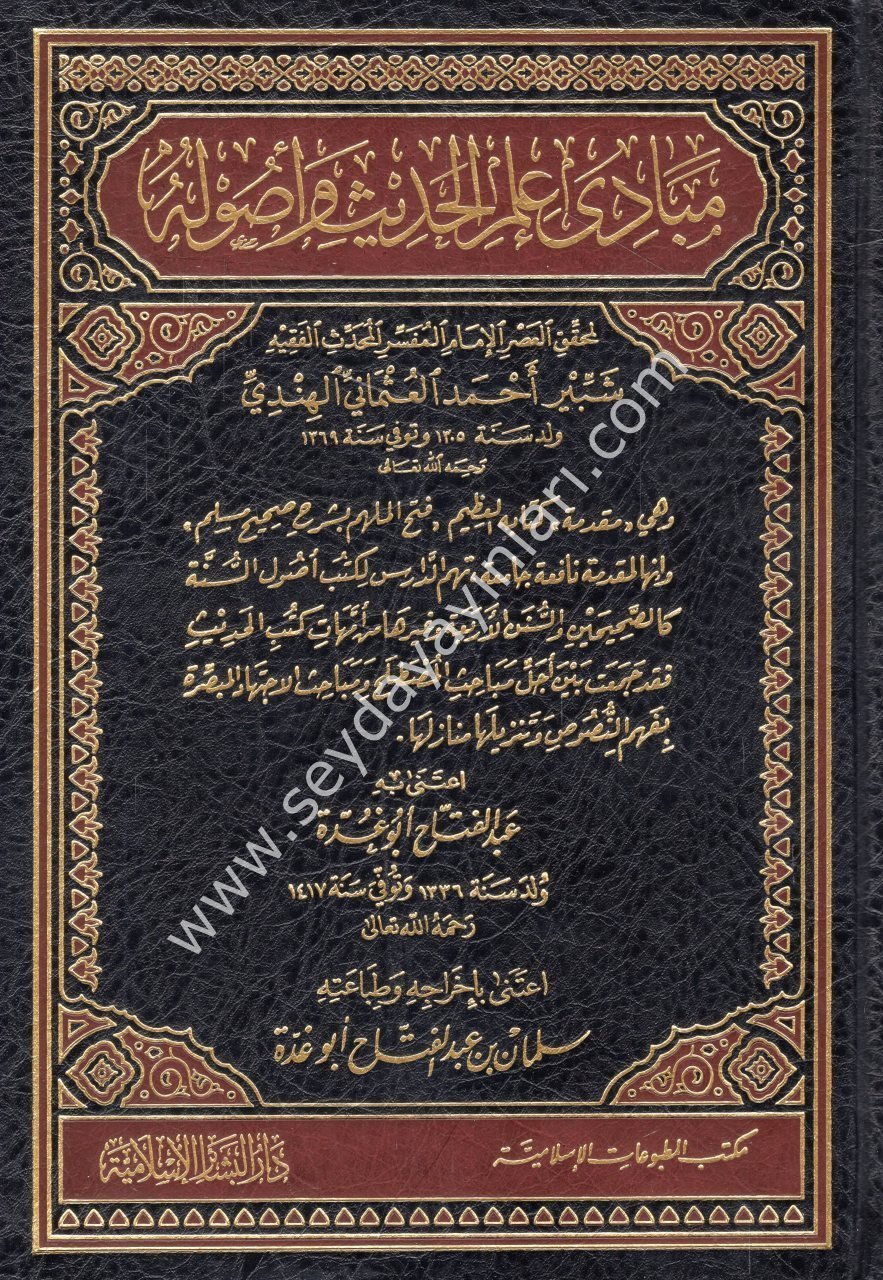 مَبَادِئ عِلْمِ الحَدِيْثِ وَأُصُولُهُ
لمحقّق العَصْر الإمَام المُفسِّر المُحدّث الفَقِيْه
شَبِّيْر أَحْمَد العُثْمَانيّ الهِنْدِيّ
ولد سَنَة ١٣٠٥ وتوفي سَنة ١٣٦٩
رَحِمَه الله تعَالى
وهي «مقدمة» كتابه العظيم «فتح الملهم بشرح صحيح مسلم»
وإنها لمقدمة نافعة جامعة تهم الدارس لكتُب أصُول السُّنَّة
كالصَّحِيحَيْنِ والسُّنَن الأَرْبَعَةِ وغيرها من أُمَّهَاتِ كُتُبِ الحَدِيْثِ
فقد جَمَعَت بَيْنَ أَجَلِّ مَبَاحِثِ المُصْطَلَحِ وَمَبَاحِث الاجتهاد المبصّرة
بِفَهم النُّصُوصِ وَتنزيلها منازلها.
اعتَنى به
عَبد الفتّاح أبُو غُدّة
وُلدَ سَنَة ١٣٣٦ وَتُوفّي سَنَة ١٤١٧
رَحمَهُ اللّه تعالىٰ
اعتَنىٰ بإخرَاجِهِ وَطِبَاعَتِهِ
سلمان بن عبد الفتّاح أبو غدّة
مكتب المطبوعات الإسلاميّة
دَارُ البَشَائِر الإسْلاميّة
www.seydayayinlari.com